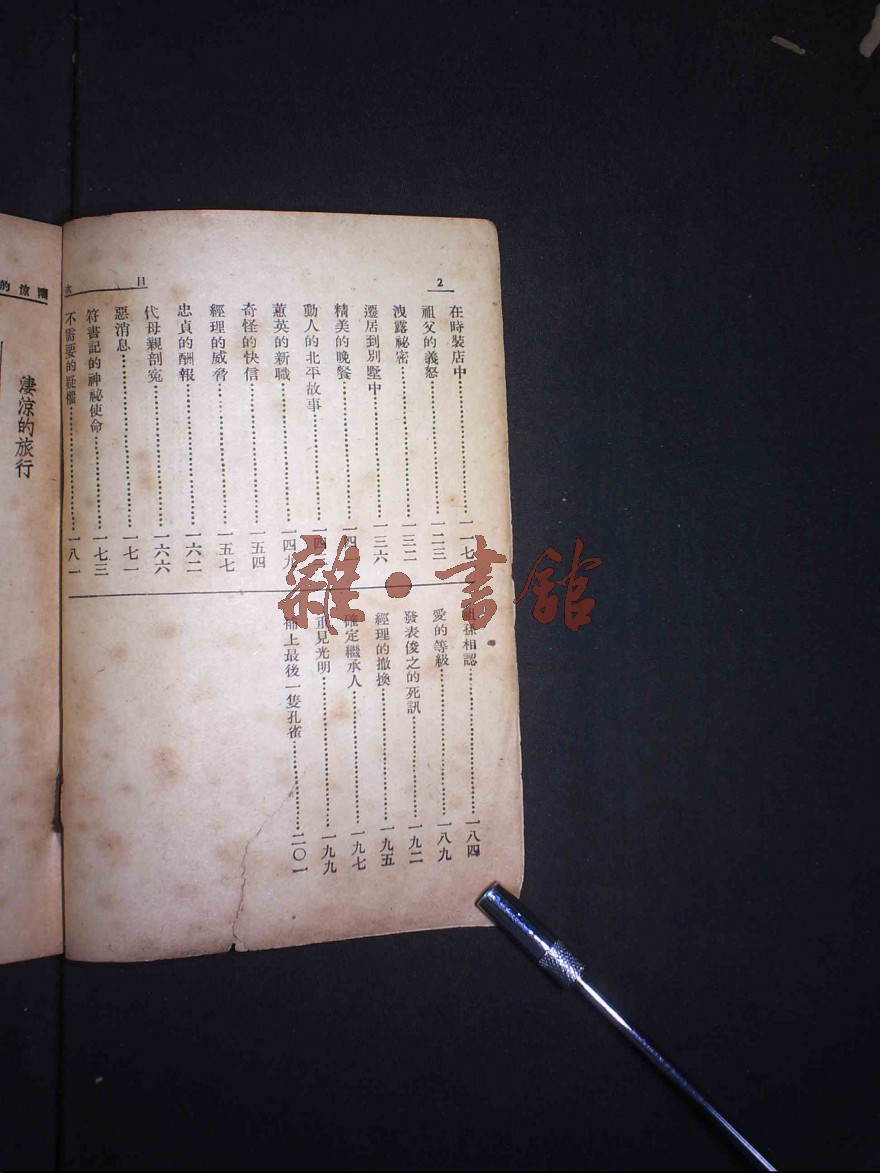 2
目
在時裝店中……一一七
祖父的義怒……一二三
洩露祕密……一三二
遷居到別墅中……一三六
精美的晚餐……一四
動人的北平故事……一四
蕙英的新職……一四九
奇怪的快信……一五四
經理的威脅……一五七
忠貞的酬報……一六二
代母親剖寃……一六六
惡消息……一七一
符書記的神祕使命……一七三
不需要的疑懼……一八一
祖孫相認……一八四
愛的等級……一八九
發表俊之的死訊……一九二
經理的撤換……一九五
確定繼承人……一九七
重見光明……一九九
補上最後一隻孔雀……二〇一
淒涼的旅行
雜·書館